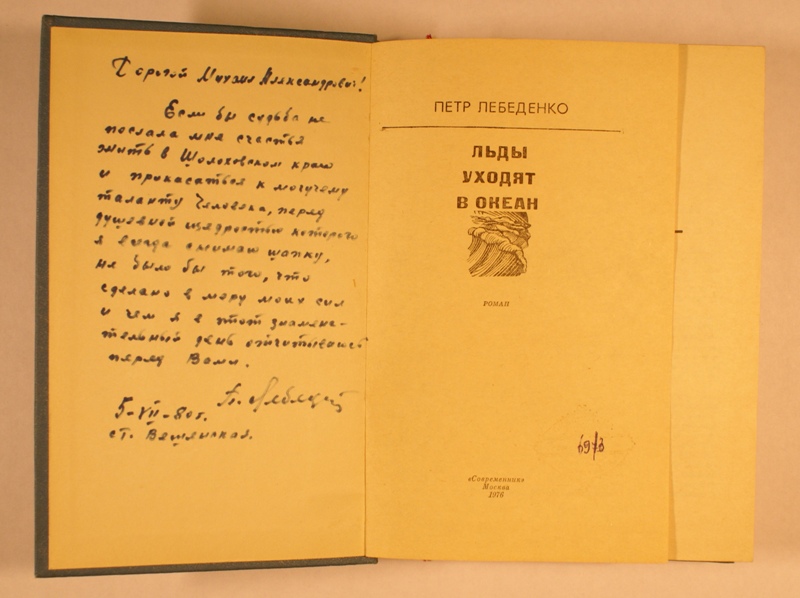 Дорогой Михаил Александрович!
Если бы судьба не
послала мне счастья
жить в Шолоховском краю
и прикасаться к могучему
таланту Человека, перед
душевной щедростью которого
я всегда снимаю шапку,
не было бы того, что
сделано в меру моих сил
и чем я в этот знамена-
тельный день отчитываюсь
перед Вами.
П. Лебеденко
5-VII-80г.
ст. Вешенская.
ПЕТР ЛЕБЕДЕНКО
ЛЬДЫ
УХОДЯТ
В ОКЕАН
РОМАН
«Современник»
Москва
1976